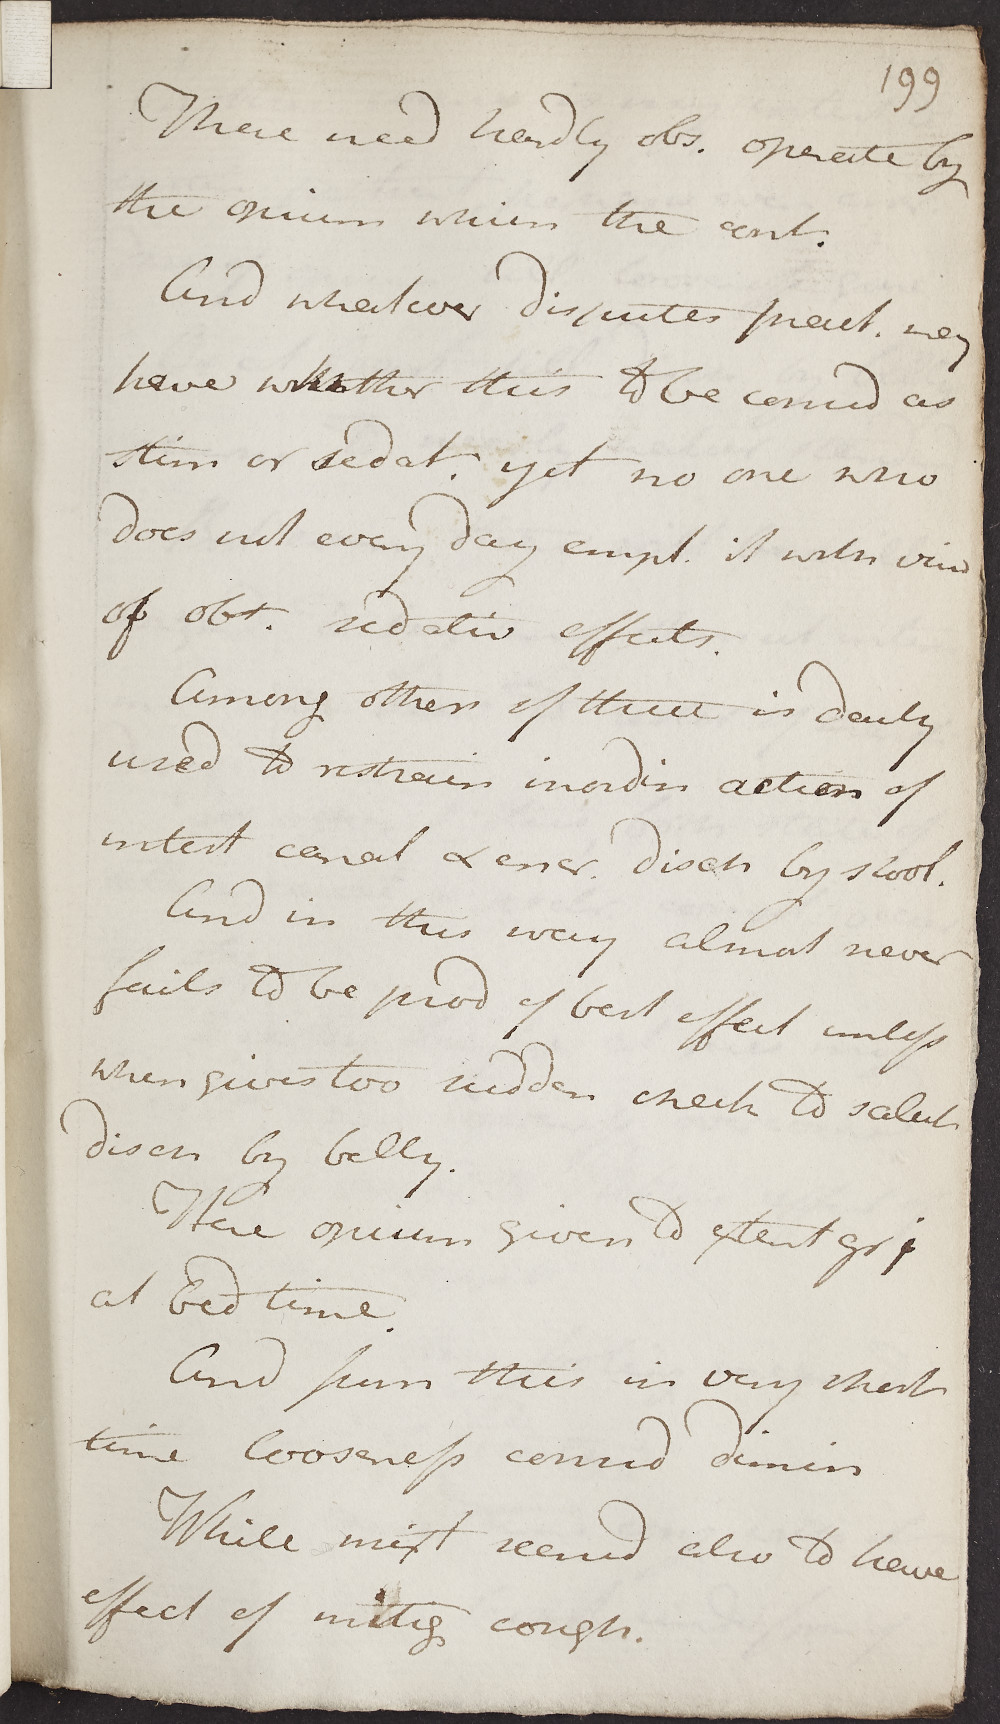 199
These need hardly obs. operate by
the opium which the cont.
And whatever disputes pract. may
have whether this to be consid as
stim or sedat. yet no one who
does not every day empl. it with view
of obt. sedativ effects.
Among others of these is daily
used to restrain inordin action of
intest canal & encr. disch by stool.
And in this way almost never
fails to be prod of best effect unless
when gives too sudden check to salut
disch by belly.
Here opium given to extent gr j
at Bed time.
And from this in very short
time looseness consid dimin
While mixt seemd also to have
effect of mitig cough.